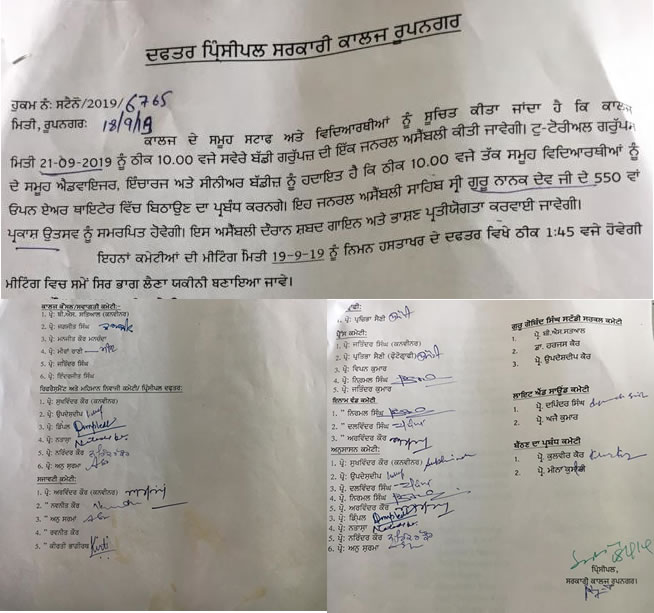 ਦਫਤਰ ਪ੍ਰਿੰਸੀਪਲ ਸਰਕਾਰੀ ਕਾਲਜ ਰੂਪਨਗਰ
ਹੁਕਮ ਨੰ: ਸਟੈਨੋ/2019/6765
ਮਿਤੀ, ਰੂਪਨਗਰ: 18/9/19
ਕਾਲਜ ਦੇ ਸਮੂਹ ਸਟਾਫ ਅਤੇ ਵਿਦਿਆਰਥੀਆਂ ਨੂੰ ਸੂਚਿਤ ਕੀਤਾ ਜਾਂਦਾ ਹੈ ਕਿ ਕਾਲਜ
ਮਿਤੀ 21-09-2019 ਨੂੰ ਠੀਕ 10.00 ਵਜੇ ਸਵੇਰੇ ਬੱਡੀ ਗਰੁੱਪਜ਼ ਦੀ ਇੱਕ ਜਨਰਲ ਅਸੈਂਬਲੀ ਕੀਤੀ ਜਾਵੇਗੀ। ਟੁ-ਟੋਰੀਅਲ ਗਰੁੱਪਸ
ਦੇ ਸਮੂਹ ਐਡਵਾਇਜਰ, ਇੰਚਾਰਜ ਅਤੇ ਸੀਨੀਅਰ ਬੱਡੀਜ਼ ਨੂੰ ਹਦਾਇਤ ਹੈ ਕਿ ਠੀਕ 10.00 ਵਜੇ ਤੱਕ ਸਮੂਹ ਵਿਦਿਆਰਥੀਆਂ ਨੂੰ
ਓਪਨ ਏਅਰ ਥਾਇਟੇਰ ਵਿੱਚ ਬਿਠਾਉਣ ਦਾ ਪ੍ਰਬੰਧ ਕਰਨਗੇ। ਇਹ ਜਨਰਲ ਅਸੈਂਬਲੀ ਸਾਹਿਬ ਸ੍ਰੀ ਗੁਰੂ ਨਾਨਕ ਦੇਵ ਜੀ ਦੇ 550 ਵਾਂ
ਪ੍ਰਕਾਸ਼ ਉਤਸਵ ਨੂੰ ਸਮਰਪਿਤ ਹੋਵੇਗੀ। ਇਸ ਅਸੈਂਬਲੀ ਦੌਰਾਨ ਸ਼ਬਦ ਗਾਇਨ ਅਤੇ ਭਾਸ਼ਣ ਪ੍ਰਤੀਯੋਗਤਾ ਕਰਵਾਈ ਜਾਵੇਗੀ।
ਇਹਨਾਂ ਕਮੇਟੀਆਂ ਦੀ ਮੀਟਿੰਗ ਮਿਤੀ 19-9-19 ਨੂੰ ਨਿਮਨ ਹਸਤਾਖਰ ਦੇ ਦਫਤਰ ਵਿਖੇ ਠੀਕ 1:45 ਵਜੇ ਹੋਵੇਗੀ
ਮੀਟਿੰਗ ਵਿਚ ਸਮੇਂ ਸਿਰ ਭਾਗ ਲੈਣਾ ਯਕੀਨੀ ਬਣਾਇਆ ਜਾਵੇ।
ਕਾਲਜ ਕੌਂਸਲ/ਸਵਾਗਤੀ ਕਮੇਟੀ:-
1. ਪ੍ਰੋ: ਬੀ.ਐਸ. ਸਤਿਆਲ (ਕਨਵੀਨਰ)
2. ਪ੍ਰੋ: ਜਗਜੀਤ ਸਿੰਘ
3. ਪ੍ਰੋ: ਮਨਜੀਤ ਕੌਰ ਮਨਚੰਦਾ
4. ਪ੍ਰੋ: ਮੀਰਾ ਰਾਣੀ
5. ਪ੍ਰੋ: ਜਤਿੰਦਰ ਸਿੰਘ
6. ਪ੍ਰੋ: ਇੰਦਰਜੀਤ ਸਿੰਘ
ਰਿਫਰੈਸ਼ਮੈਂਟ ਅਤੇ ਮਹਿਮਾਨ ਨਿਵਾਜੀ ਕਮੇਟੀ/ ਪ੍ਰਿੰਸੀਪਲ ਦਫਤਰ:
1. ਪ੍ਰੋ: ਸੁਖਵਿੰਦਰ ਕੌਰ (ਕਨਵੀਨਰ)
2. ਪ੍ਰੋ: ਉਪਦੇਸ਼ਦੀਪ
3. ਪ੍ਰੋ: ਡਿੰਪਲ
4. ਪ੍ਰੋ: ਨਤਾਸ਼ਾ
5. ਪ੍ਰੋ: ਨਰਿੰਦਰ ਕੌਰ
6. ਪ੍ਰੋ: ਅਨੁ ਸ਼ਰਮਾ
ਸਜਾਵਟੀ ਕਮੇਟੀ:
1. ਪ੍ਰੋ: ਅਰਵਿੰਦਰ ਕੌਰ (ਕਨਵੀਨਰ)
2. " ਨਵਨੀਤ ਕੌਰ
3. " ਅਨੁ ਸ਼ਰਮਾ
4. " ਰਵਨੀਤ ਕੌਰ
5. " ਕੀਰਤੀ ਭਾਗੀਰਥ Kirti
1. ਪ੍ਰੋ: ਪ੍ਰਤਿਭਾ ਸੈਣੀ
ਪ੍ਰੈੱਸ ਕਮੇਟੀ:
1. ਪ੍ਰੋ: ਜਤਿੰਦਰ ਸਿੰਘ (ਕਨਵੀਨਰ)
2. ਪ੍ਰੋ: ਪ੍ਰਤਿਭਾ ਸੈਣੀ (ਫੋਟੋਗ੍ਰਾਫੀ)
3. ਪ੍ਰੋ: ਵਿਪਨ ਕੁਮਾਰ
4. ਪ੍ਰੋ: ਨਿਰਮਲ ਸਿੰਘ
5. ਪ੍ਰੋ: ਜਤਿੰਦਰ ਕੁਮਾਰ
ਇਨਾਮ ਵੰਡ ਕਮੇਟੀ:
1. " ਨਿਰਮਲ ਸਿੰਘ
2. " ਦਲਵਿੰਦਰ ਸਿੰਘ
3. " ਅਰਵਿੰਦਰ ਕੌਰ
ਅਨੁਸਾਸਨ ਕਮੇਟੀ:
1. ਪ੍ਰੋ: ਸੁਖਵਿੰਦਰ ਕੌਰ (ਕਨਵੀਨਰ)
2. ਪ੍ਰੋ: ਉਪਦੇਸ਼ਦੀਪ
3. ਪ੍ਰੋ: ਦਲਵਿੰਦਰ ਸਿੰਘ
4. ਪ੍ਰੋ: ਨਿਰਮਲ ਸਿੰਘ
5. ਪ੍ਰੋ: ਅਰਵਿੰਦਰ ਕੌਰ
3. ਪ੍ਰੋ: ਡਿੰਪਲ
4. ਪ੍ਰੋ: ਨਤਾਸ਼ਾ
5. ਪ੍ਰੋ: ਨਰਿੰਦਰ ਕੌਰ
6. ਪ੍ਰੋ: ਅਨੁ ਸ਼ਰਮਾ
ਗੁਰੂ ਗੋਬਿੰਦ ਸਿੰਘ ਸਟੱਡੀ ਸਰਕਲ ਕਮੇਟੀ
1. ਪ੍ਰੋ. ਬੀ.ਐਸ ਸਤਆਲ
2. ਡਾ. ਹਰਜਸ ਕੌਰ
3. ਪ੍ਰੋ. ਉਪਦੇਸ਼ਦੀਪ ਕੌਰ
ਲਾਇਟ ਐਂਡ ਸਾਊਂਡ ਕਮੇਟੀ
1. ਪ੍ਰੋ. ਦਪਿੰਦਰ ਸਿੰਘ
2. ਪ੍ਰੋ. ਅਜੈ ਕੁਮਾਰ
ਬੈਠਣ ਦਾ ਪ੍ਰਬੰਧ ਕਮੇਟੀ
1. ਪ੍ਰੋ. ਕੁਲਵੀਰ ਕੌਰ
2. ਪ੍ਰੋ. ਮੀਨਾ ਕੁਮਾਰੀ
ਪ੍ਰਿੰਸੀਪਲ,
ਸਰਕਾਰੀ ਕਾਲਜ ਰੂਪਨਗਰ।